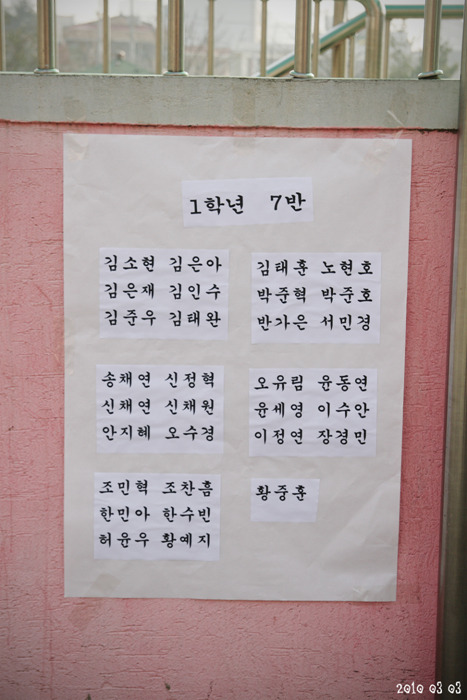 1학년 7반
김소현 김은아
김은재 김인수
김준우 김태완
김태훈 노현호
박준혁 박준호
반가은 서민경
송채연 신정혁
신채연 신채원
안지혜 오수경
오유림 윤동연
윤세영 이수안
이정연 장경민
조민혁 조찬흠
한민아 한수빈
허윤우 황예지
황중훈
2010 03 03